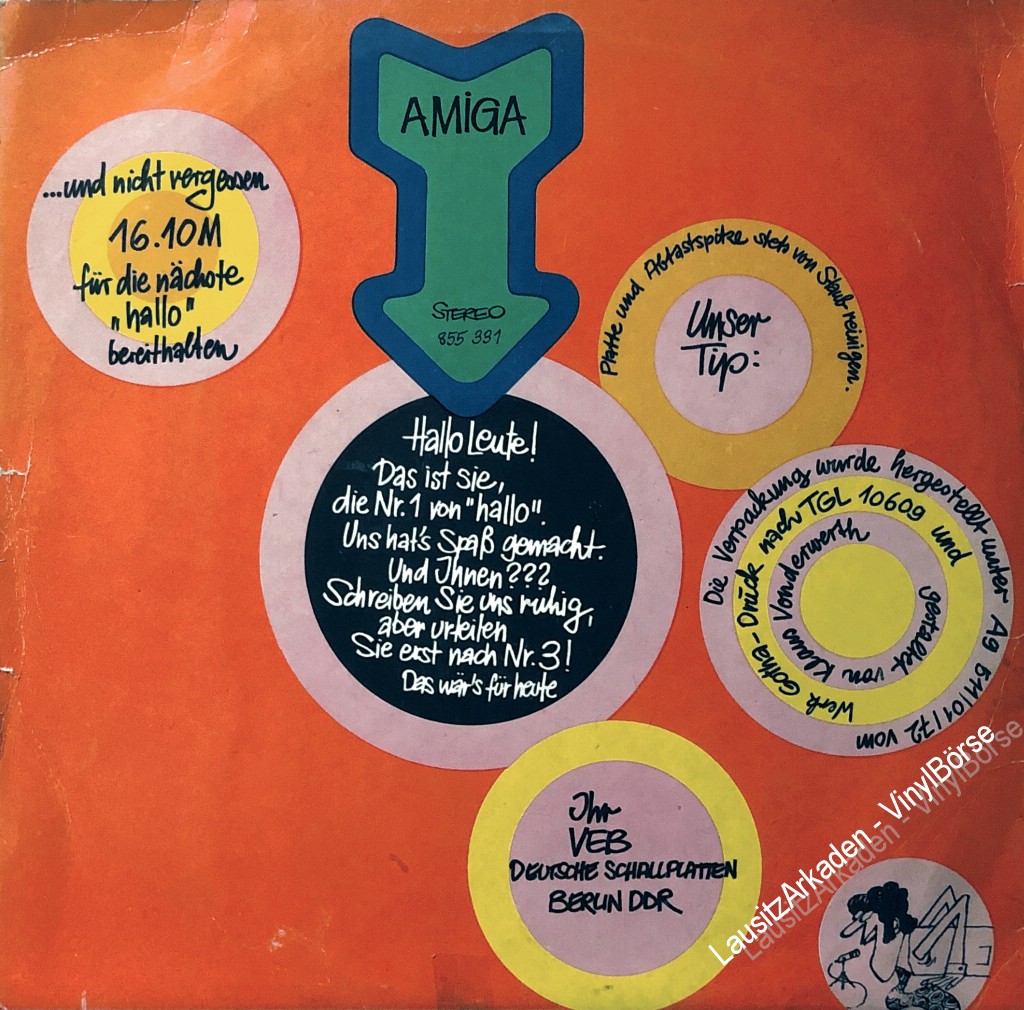 AMIGA
STEREO
855 331
...und nicht vergessen
16.10M
für die nächste
"hallo"
bereithalten
Unser
Tip:
Platte und Abtastspitze stets von Staub reinigen.
Hallo Leute!
Das ist sie,
die Nr. 1 von "hallo".
Uns hat's Spaß gemacht.
Und Ihnen???
Schreiben Sie uns ruhig,
aber urteilen
Sie erst nach Nr. 3!
Das wär's für heute
Die Verpackung wurde hergestellt unter Ag 511/01/72 vom
Werk Gotha-Druck nach TGL 10609 und
gestaltet von Klaus Vonderwerth
Ihr
VEB
DEUTSCHE SCHALLPLATTEN
BERLIN DDR
LausitzArkaden - VinylBörse